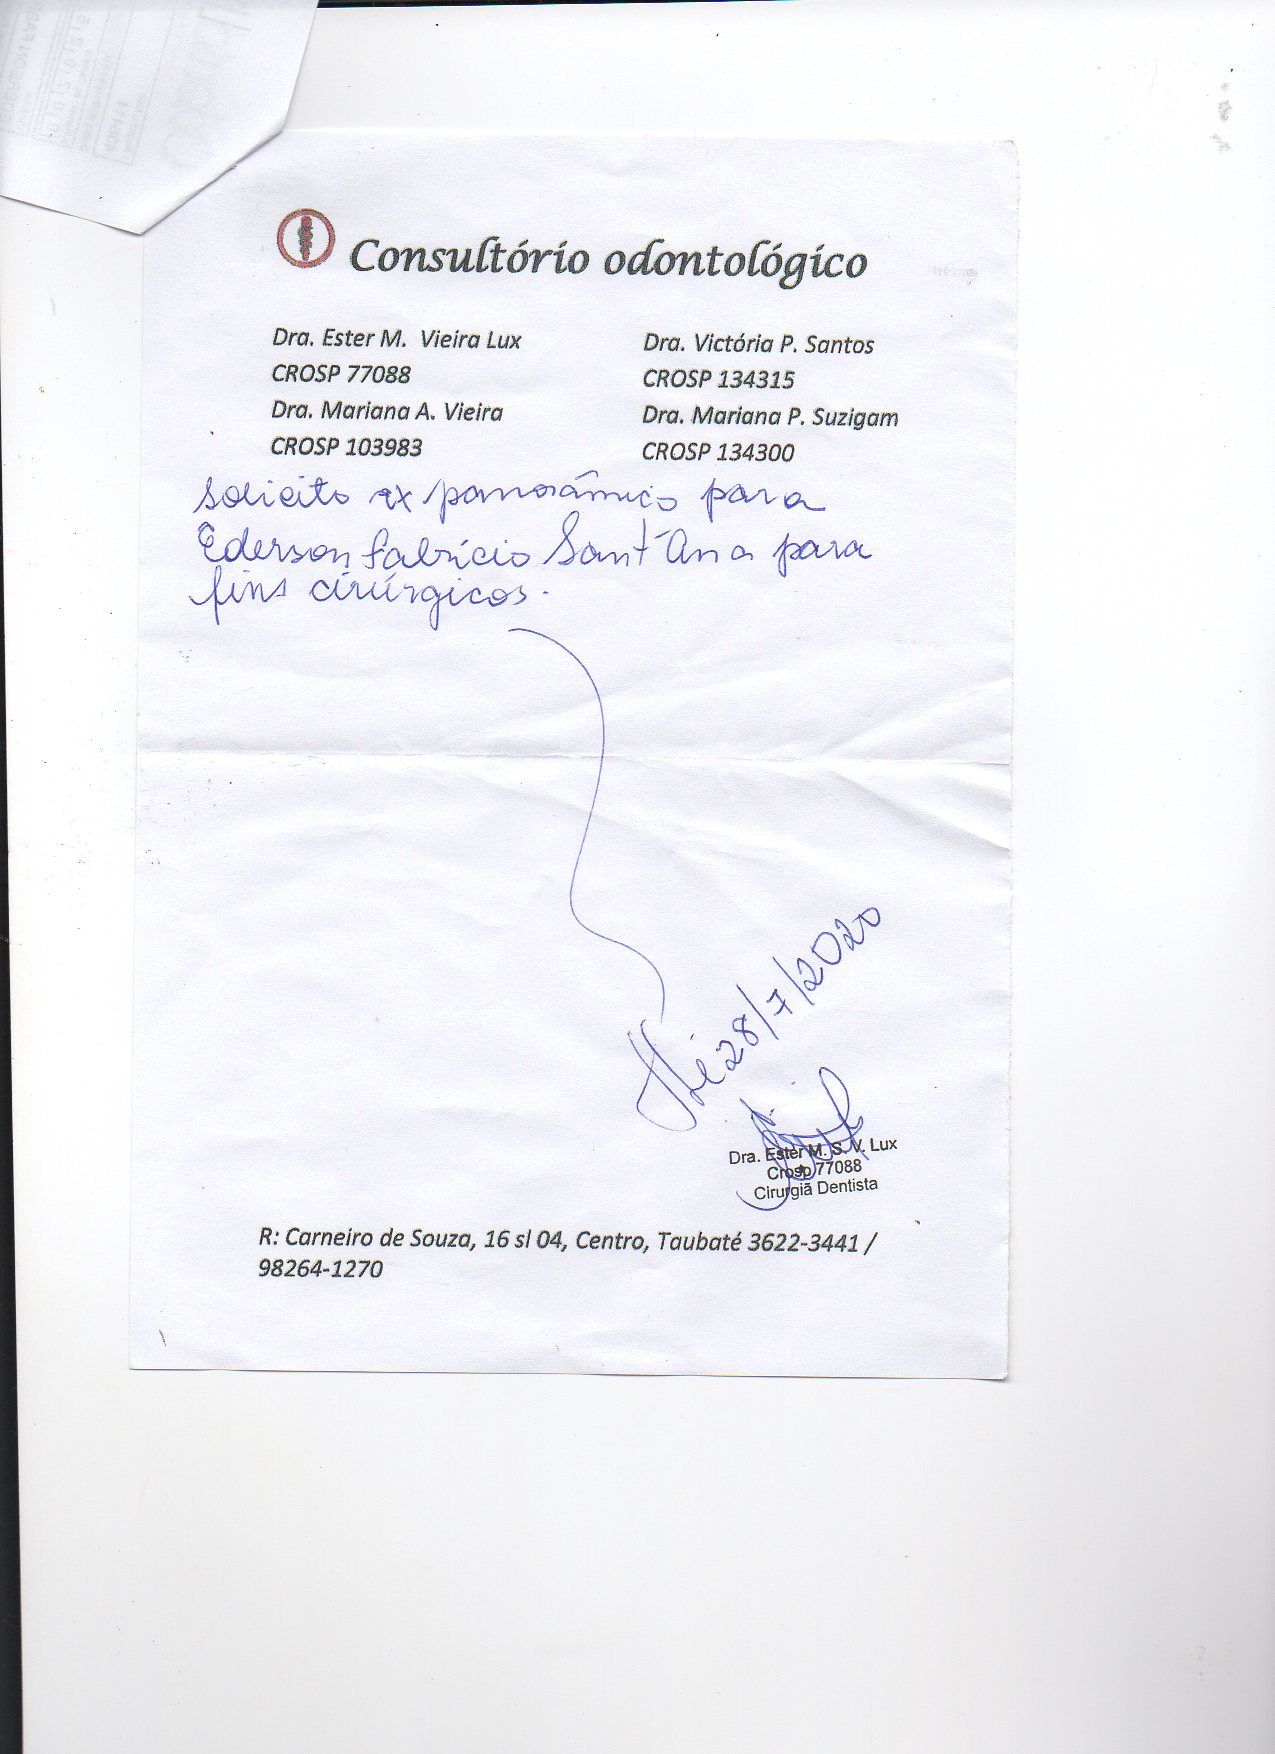 Consultório odontológico
Dra. Ester M. Vieira Lux
CROSP 77088
Dra. Mariana A. Vieira
CROSP 103983
Dra. Victória P. Santos
CROSP 134315
Dra. Mariana P. Suzigam
CROSP 134300
solicito rx panorâmico para
Ederson Fabrício Sant'Ana para
fins cirúrgicos.
28/7/2020
Dra. Ester M. S. V. Lux
Crosp 77088
Cirurgiã Dentista
R: Carneiro de Souza, 16 sl 04, Centro, Taubaté 3622-3441 /
98264-1270